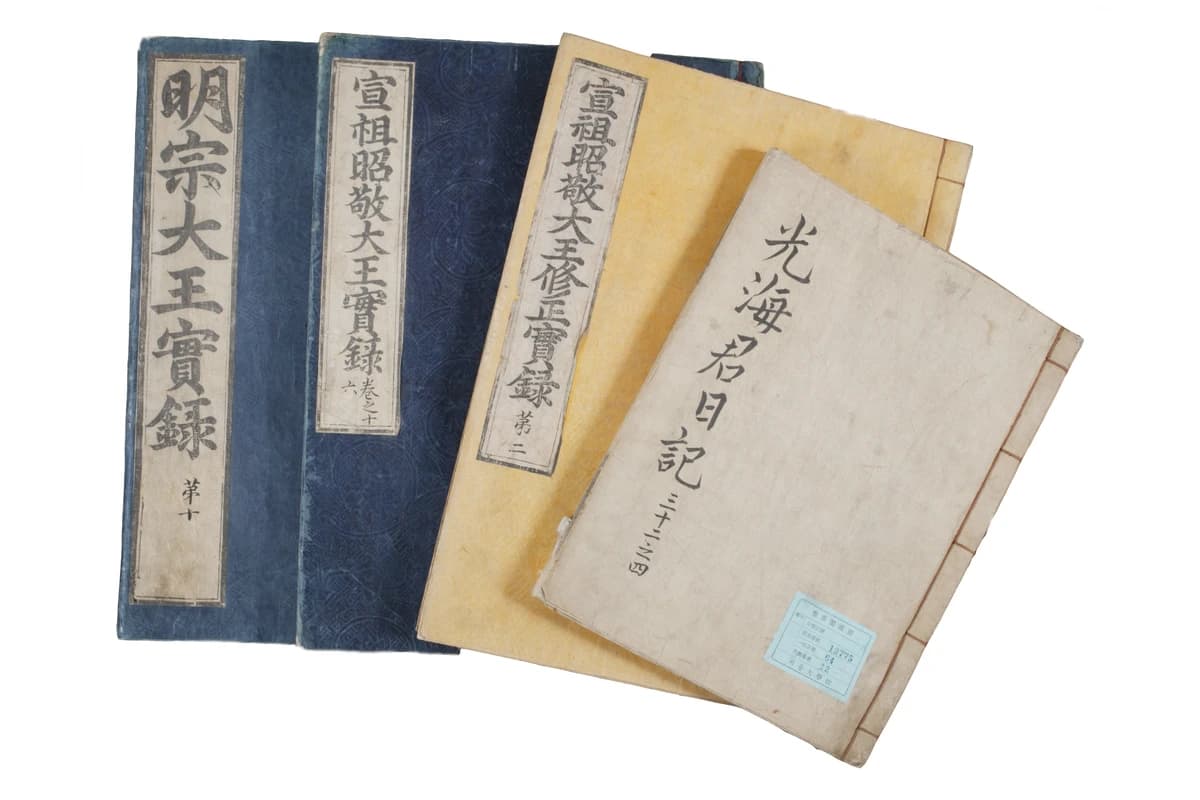 明宗大王實錄
第十
宣祖昭敬大王實錄
卷之十
六
宣祖昭敬大王修正實錄
第二
光海君日記
三十二之四
12775
64
22